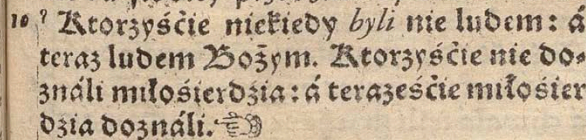 10 ? Ktorzyśćie niekiedy byli nie ludem: á
teraz ludem Bożym. Ktorzyśćie nie do⸗
ználi miłośierdzia: á teraześćie miłośier
dzia doználi.